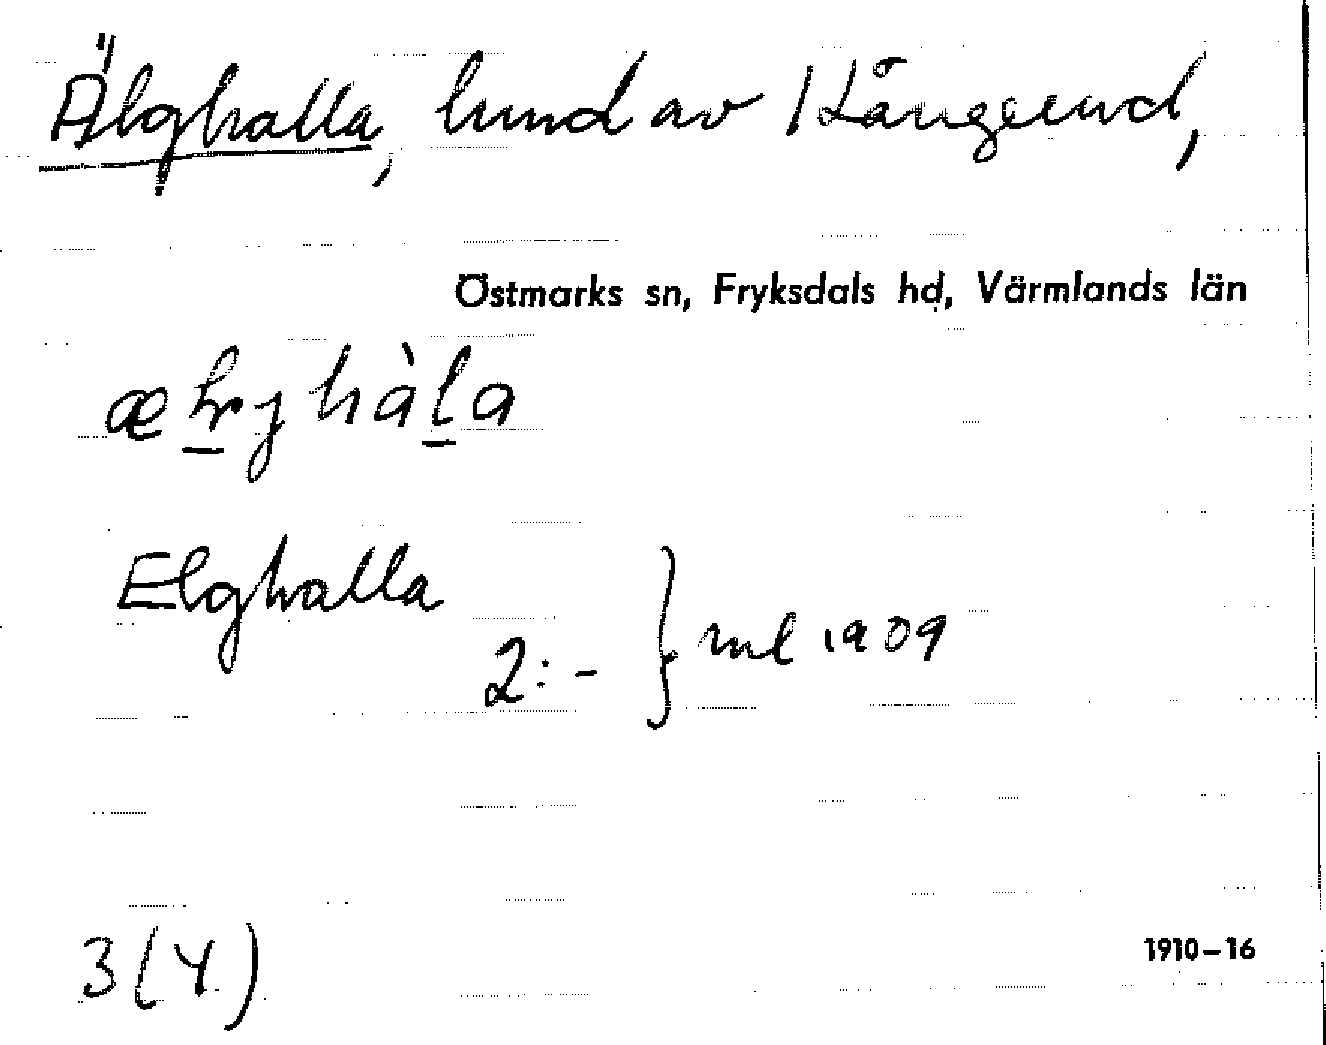 Älghalla, lund av Långeund,
Östmarks sn, Fryksdals hd, Värmlands län
Elghalla
2:- } ml 1909
3(4)
1910–16